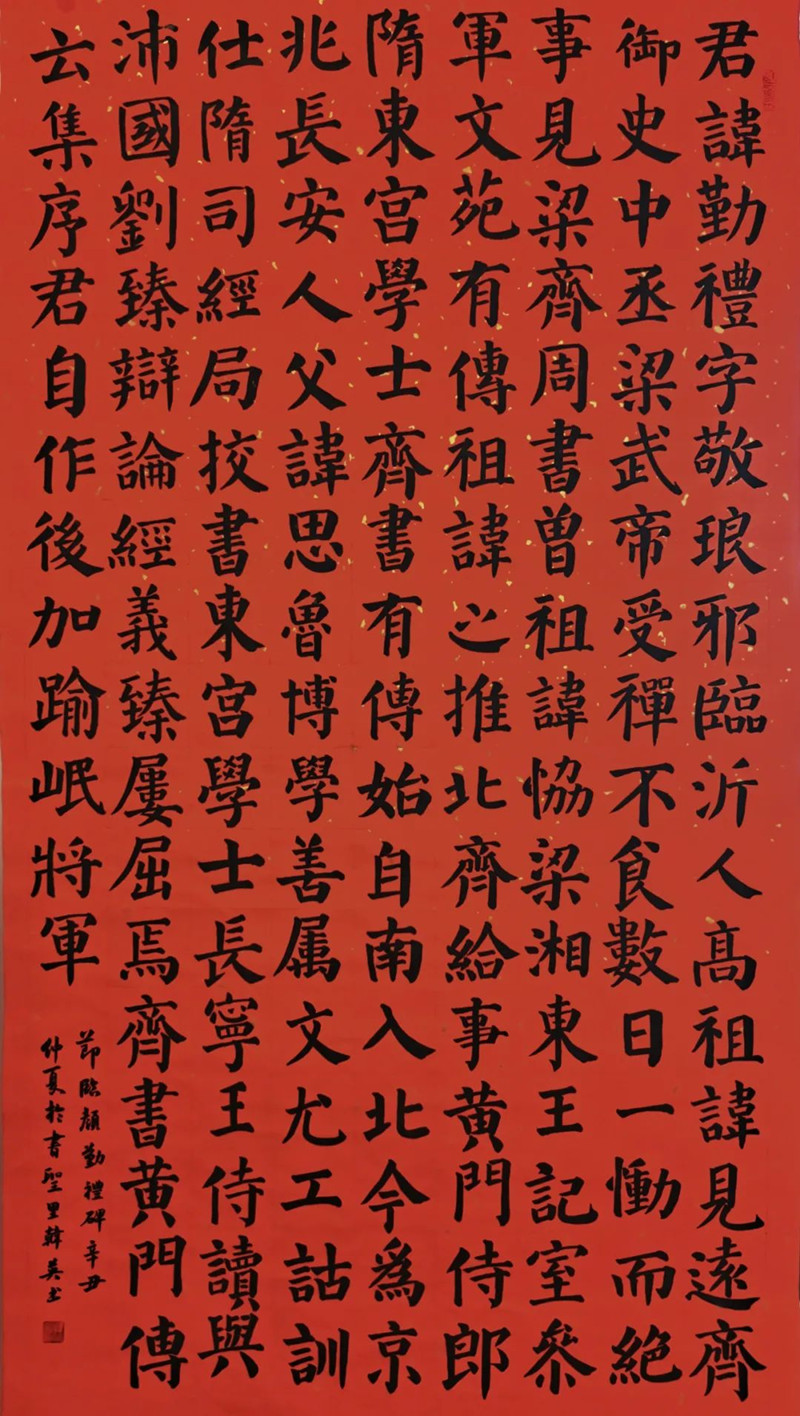 君諱勤禮字敬琅邪臨沂人高祖諱見遠齊
御史中丞梁武帝受禪不食數日一慟而絶
事見梁齊周書曾祖諱協梁湘東王記室参
軍文苑有傳祖諱之推北齊給事黄門侍郎
隋東宫學士齊書有傳始自南入北今為京
兆長安人父諱思魯博學善属文尤工詁訓
仕隋司經局挍書東宫學士長寧王侍讀與
沛國劉臻辯論經義臻屢屈焉齊書黄門傳
云集序君自作後加踰岷將軍
節臨顏勤禮碑辛丑
仲夏於書聖里韓英书